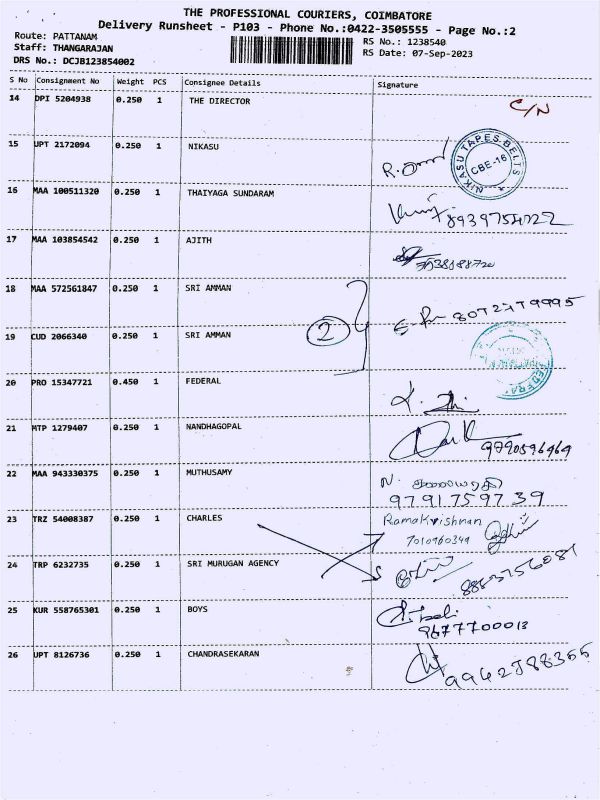 THE PROFESSIONAL COURIERS, COIMBATORE
Delivery Runsheet - P103 - Phone No.:0422-3505555 - Page No.:2
Route: PATTANAM
Staff: THANGARAJAN
DRS No.: DCJB123854002
RS No.: 1238540
RS Date: 07-Sep-2023
S No Consignment No Weight PCS Consignee Details Signature
14 DPI 5204938 0.250 1 THE DIRECTOR C/N
15 UPT 2172094 0.250 1 NIKASU
NIKASU TAPES BELTS CBE-16
16 MAA 100511320 0.250 1 THAIYAGA SUNDARAM
8939754722
17 MAA 103854542 0.250 1 AJITH
18 MAA 572561847 0.250 1 SRI AMMAN
2
19 CUD 2066340 0.250 1 SRI AMMAN
20 PRO 15347721 0.450 1 FEDERAL
21 MTP 1279407 0.250 1 NANDHAGOPAL
9790596969
22 MAA 943330375 0.250 1 MUTHUSAMY
9791759739
23 TRZ 54008387 0.250 1 CHARLES Ramakrishnan
7010960349
24 TRP 6232735 0.250 1 SRI MURUGAN AGENCY
25 KUR 558765301 0.250 1 BOYS
9677700013
26 UPT 8126736 0.250 1 CHANDRASEKARAN